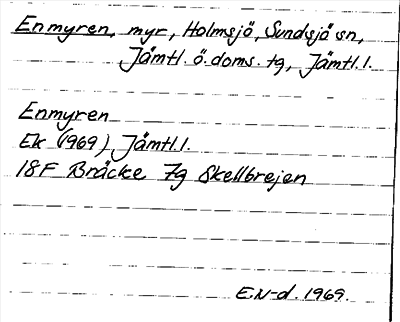 Enmyren, myr, Holmsjö, Sundsjö sn,
Jämtl. ö. doms. tg, Jämtl. l.
Enmyren
Ek (1969) Jämtl. l.
18F Bräcke 7g Skellbrejen
E.N-d. 1969.